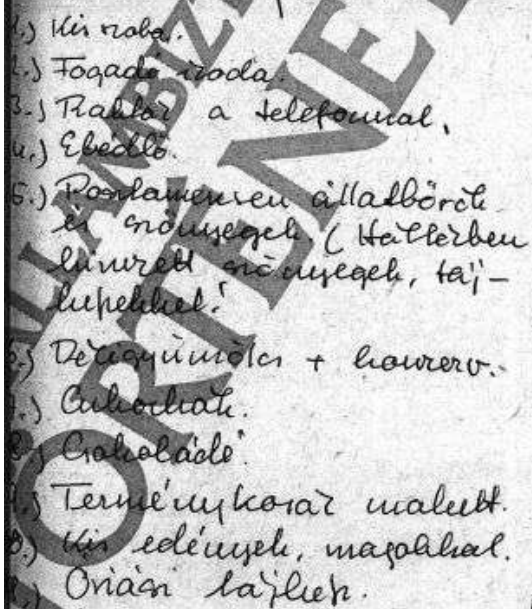 1.) Kis szoba.
2.) Fogadó iroda.
3.) Raktár a telefonnal.
4.) Ebédlő.
5.) Postamensen állatbőrök
és szőnyegek. (Háttérben
hímzett szőnyegek, táj-
képekkel.
6.) Déligyümölcs + konzerv.
7.) Cukorkák.
8.) Csokoládé.
9.) Terménykosár malett.
10.) Kis edények, magokkal.
11.) Óriási tájkép.
ÁLLAMBIZ
TÖRTÉNEL